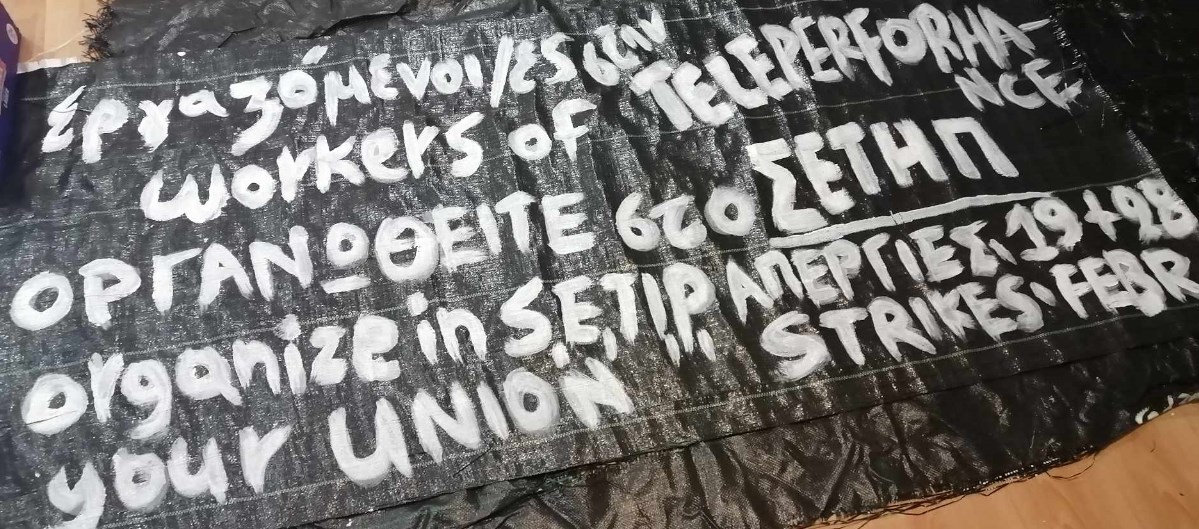 έργαζόμενοι/ες στην TELEPERFORMA-
NCE
workers of
ΟΡΓΑΝΩΘΕΙΤΕ στο ΣΕΤΗΠ
organize in S.E.T.I.P.
your UNION
ΑΠΕΡΓΙΕΣ· 19+28
STRIKES· FEBR